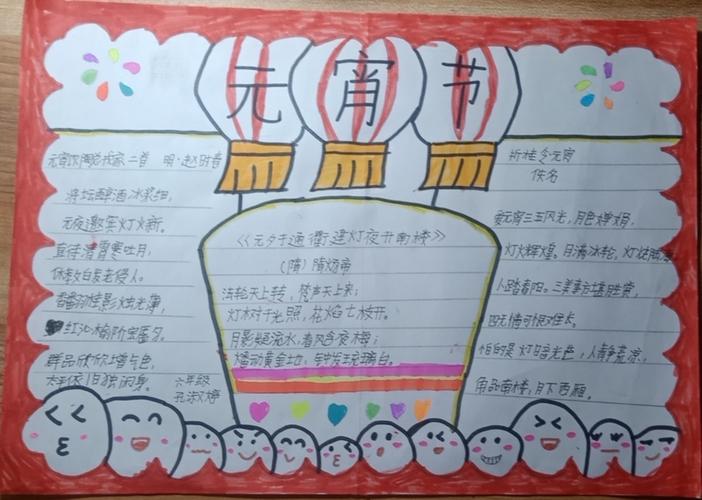 元宵节
元宵饮陶总戎家二首 明·赵时春
将坛醇酒冰浆细,
元夜邀宾灯火新。
直待清霄寒吐月,
休教白发老侵人。
香翻桂影烛光薄,
红沁榆阶宝靥匀。
群品欣欣增气色,
太平依旧独闲身。
六年级
《元夕于通衢建灯夜升南楼》
(隋)隋炀帝
法轮天上转,梵声天上来;
灯树千光照,花焰七枝开。
月影疑流水,春风含夜梅;
燔动黄金地,钟发琉璃台。
折桂令元宵
佚名
爱元宵三五风光,月色婵娟,
灯火辉煌。月满冰轮,灯烧陆海
人踏春阳。三美事方堪胜赏,
四无情可恨难长。
怕的是灯暗光芒,人静荒凉,
角品南楼,月下西厢。